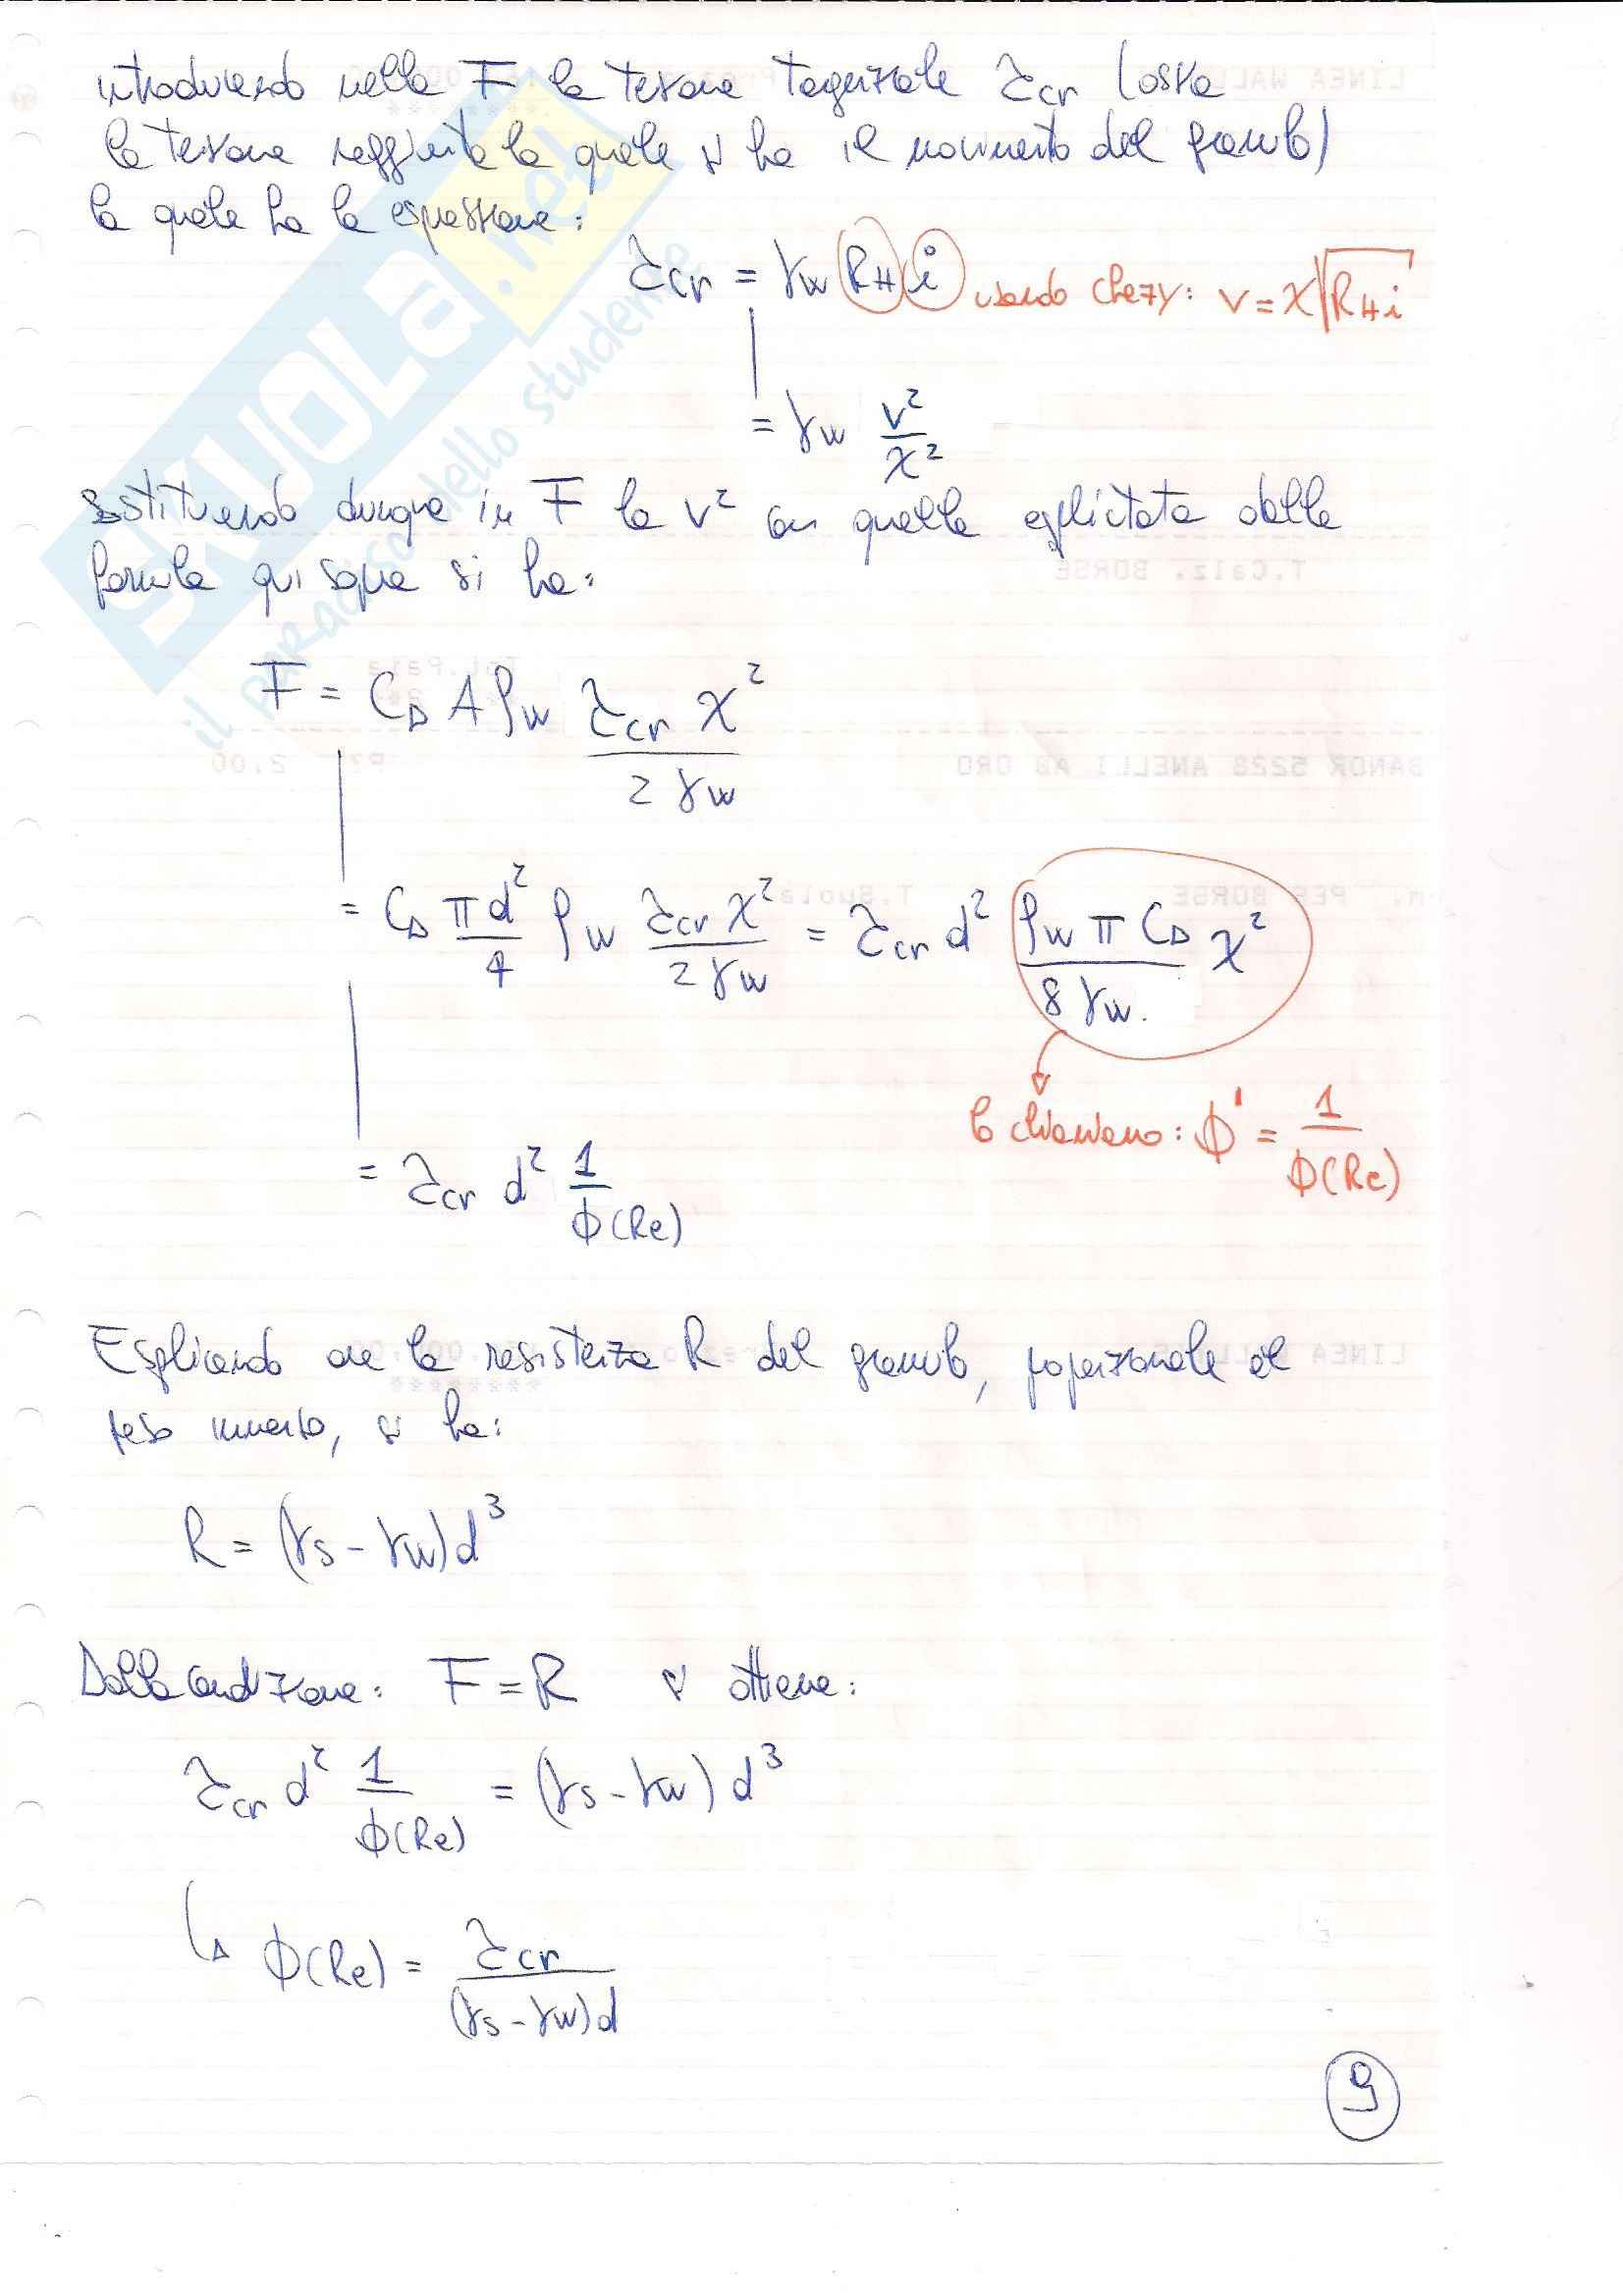 introducendo nella F la tensione tangenziale τcr (ossia
la tensione raggiunta la quale si ha il movimento del granulo)
la quale ha la espressione:
τcr = γw RH i usando Chezy: v = χ√RH i
= γw v²/χ²
Sostituendo dunque in F la v² con quella esplicitata dalla
formula qui sopra si ha:
F = CD A ρw τcr χ² / 2 γw
= CD πd²/4 ρw τcr χ²/2 γw = τcr d² ρw π CD/8 γw. χ²
lo chiamiamo: ϕ' = 1/ϕ(Re)
= τcr d² 1/ϕ(Re)
Esplicando ora la resistenza R del granulo, proporzionale al
peso immerso, si ha:
R = (γs - γw)d³
Dalla condizione: F = R si ottiene:
τcr d² 1/ϕ(Re) = (γs - γw) d³
ϕ(Re) = τcr/(γs - γw)d
9
SKUOLA.net
il paradiso dello studente
LINEA WALL
T.Calz. BORSE
BANOR 5228 ANELLI AB ORO
2.00
PER BORSE
T.Suola
LINEA